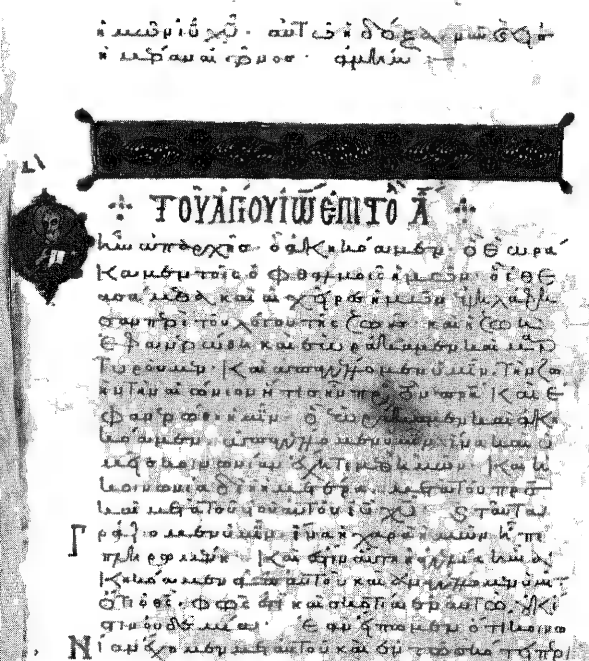 ἡμῶν ιυ χυ· αὐτῶ ἡ δόξα καὶ νῦν καὶ εἰς
ἡμέραν αἰῶνος· ἀμήν :–
+ ΤΟΥ ΑΓΙΟΥ ΙΩ ΕΠΙΣΤΟ Α +
ἦν ἀπαρχῆς ὃ ἀκηκόαμεν· ὃ ἑωρά
καμεν τοῖς ὀφθαλμοῖς ἡμῶν· ὃ ἐθε
ασάμεθα καὶ αἱ χεῖρες ἡμῶν ἐψηλάφη
σαν περὶ τοῦ λόγου τῆς ζωῆς· καὶ ἡ ζωὴ
ἐφανερώθη καὶ ἑωράκαμεν καὶ μαρ
τυροῦμεν· καὶ ἀπαγγέλλομεν ὑμῖν τὴν ζω
ὴν τὴν αἰώνιον ἥτις ἦν πρὸς τὸν πρα· καὶ ἐ
φανερώθη ἡμῖν· ὃ ἑωράκαμεν καὶ ἀκη
κόαμεν ἀπαγγέλλομεν ὑμῖν ἵνα καὶ ὑ
μεῖς κοινωνίαν ἔχητε μεθ ἡμῶν· καὶ ἡ
κοινωνία δὲ ἡ ἡμετέρα μετὰ τοῦ πρσ
καὶ μετὰ τοῦ υἱοῦ αὐτοῦ ιυ χυ· καὶ ταῦτα
γράφομεν ὑμῖν ἵνα ἡ χαρὰ ἡμῶν ἦ πε
πληρωμένη· καὶ ἔστιν αὕτη ἡ ἀγγελία ἣν ἀ
κηκόαμεν ἀπ αὐτοῦ καὶ ἀναγγέλλομεν ὑμῖν
ὅτι ὁ θσ φῶς ἐστι καὶ σκοτία ἐν αὐτῶ οὐκ ἔ
στιν οὐδεμία· ἐὰν εἴπωμεν ὅτι κοινω
νίαν ἔχομεν μετ αὐτοῦ καὶ ἐν τῶ σκότει περι